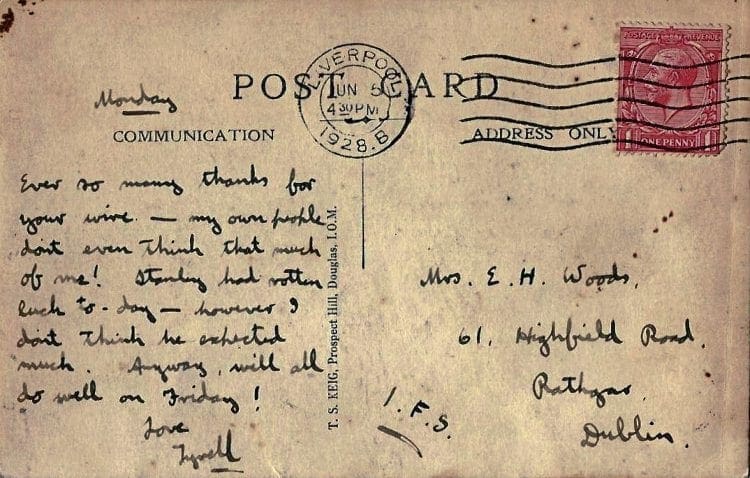 POST CARD
Monday
COMMUNICATION
ADDRESS ONLY
LIVERPOOL
JUN 5
4 30 PM
1928.B
POSTAGE REVENUE
1 ONE PENNY 1
Ever so many thanks for
your wire. — my own people
dont even think that much
of me! Stanley had rotten
luck to-day — however I
dont think he expected
much. Anyway, will all
do well on Friday!
Love
Tyrell
T. S. KEIG, Prospect Hill, Douglas, I.O.M.
Mrs. E. H. Woods,
61, Highfield Road,
Rathgar,
Dublin.
I.F.S.